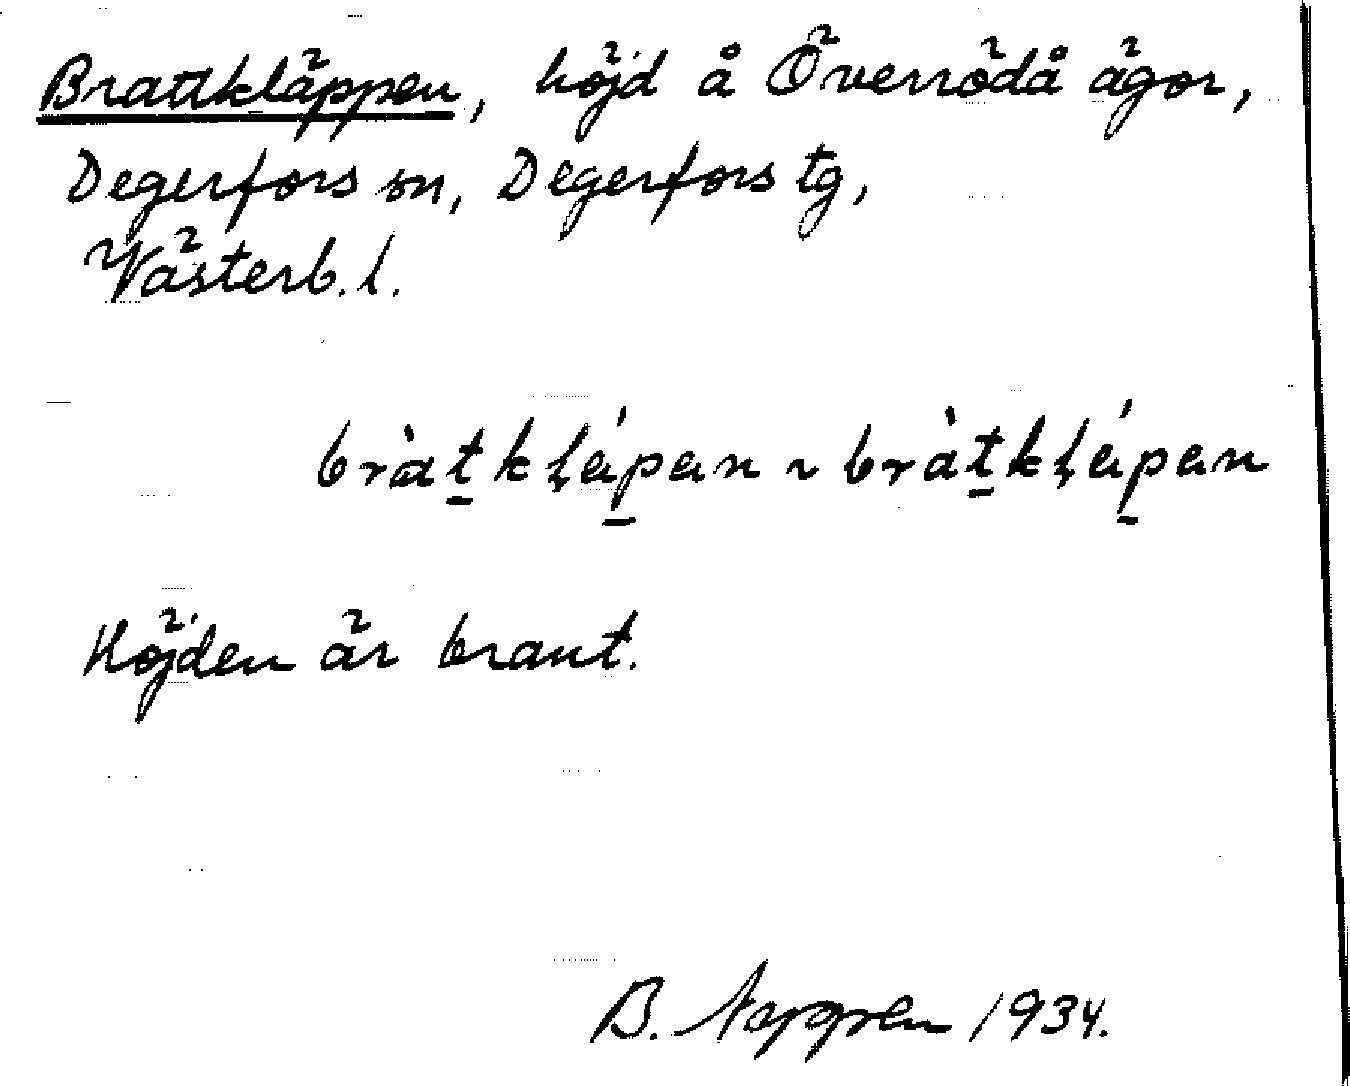 Brattkläppen, höjd å Överrödå ägor,
Degerfors sn, Degerfors tg,
Västerb. l.
bràt̠kḷáp̠an ~ bràt̠kḷáp̠an
Höjden är brant.
B. 1934.